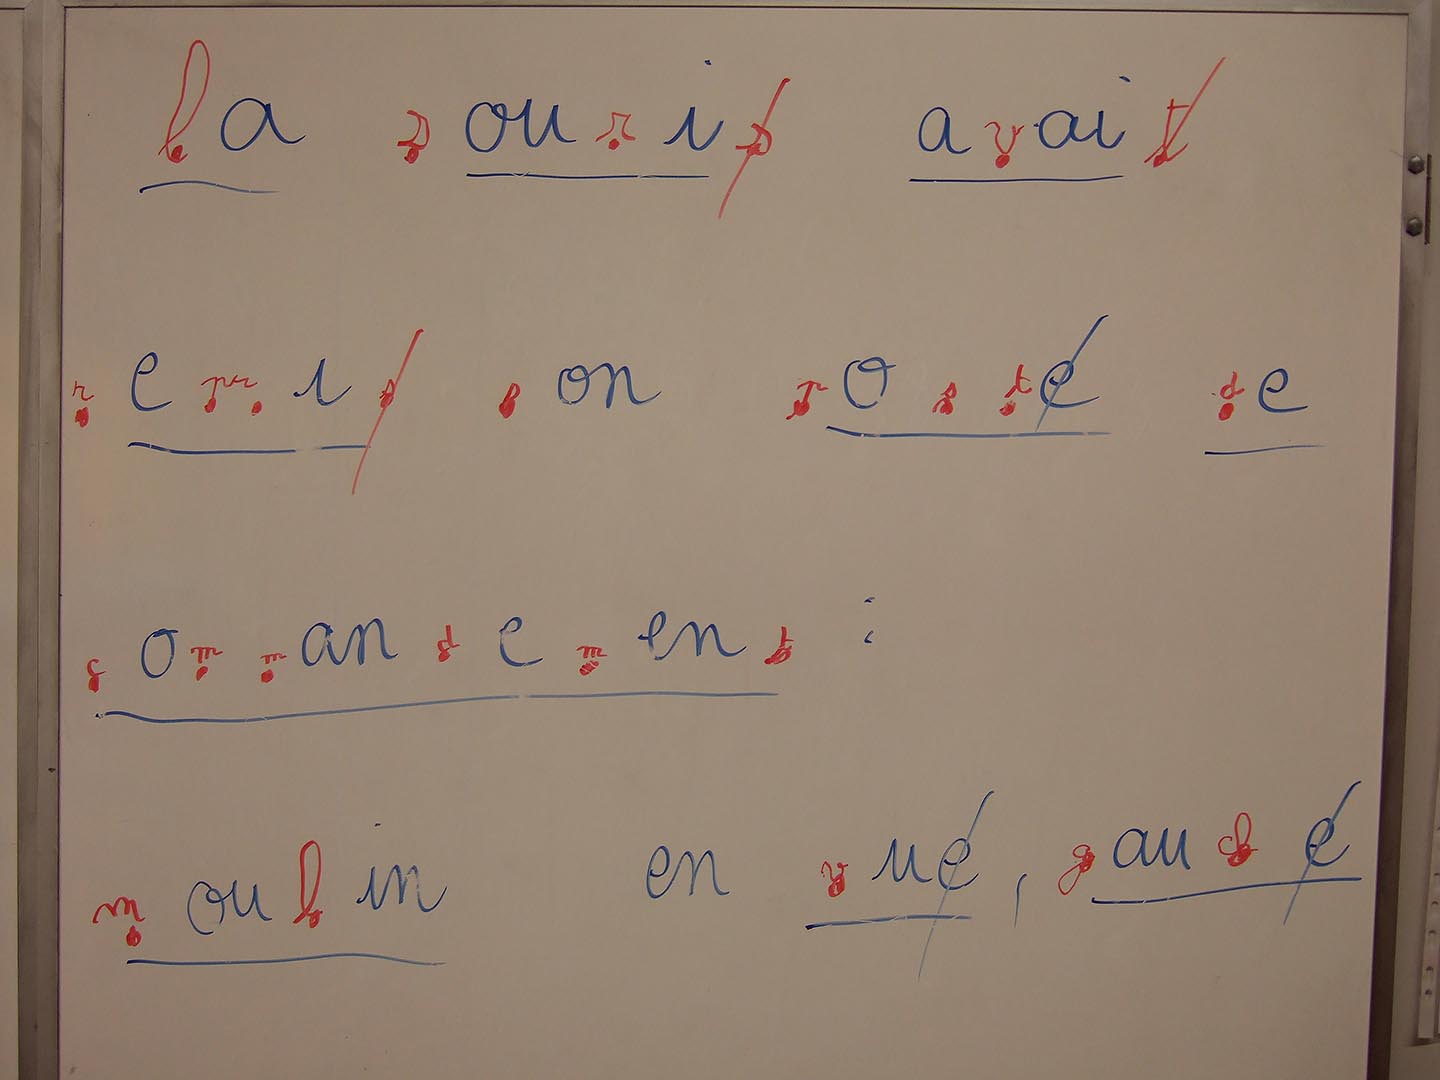 la souris avait
repris son poste de
commandement :
moulin en vue, gauche